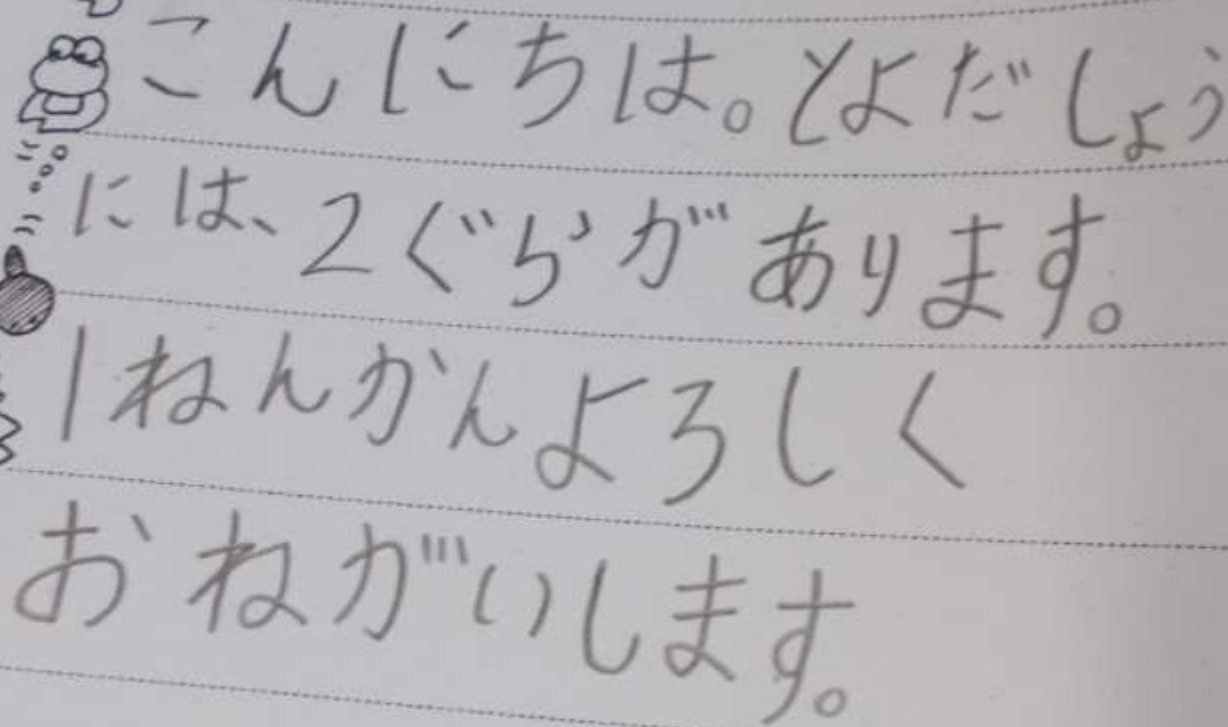 こんにちは。とよだしょう
には、2ぐらがあります。
1ねんかんよろしく
おねがいします。